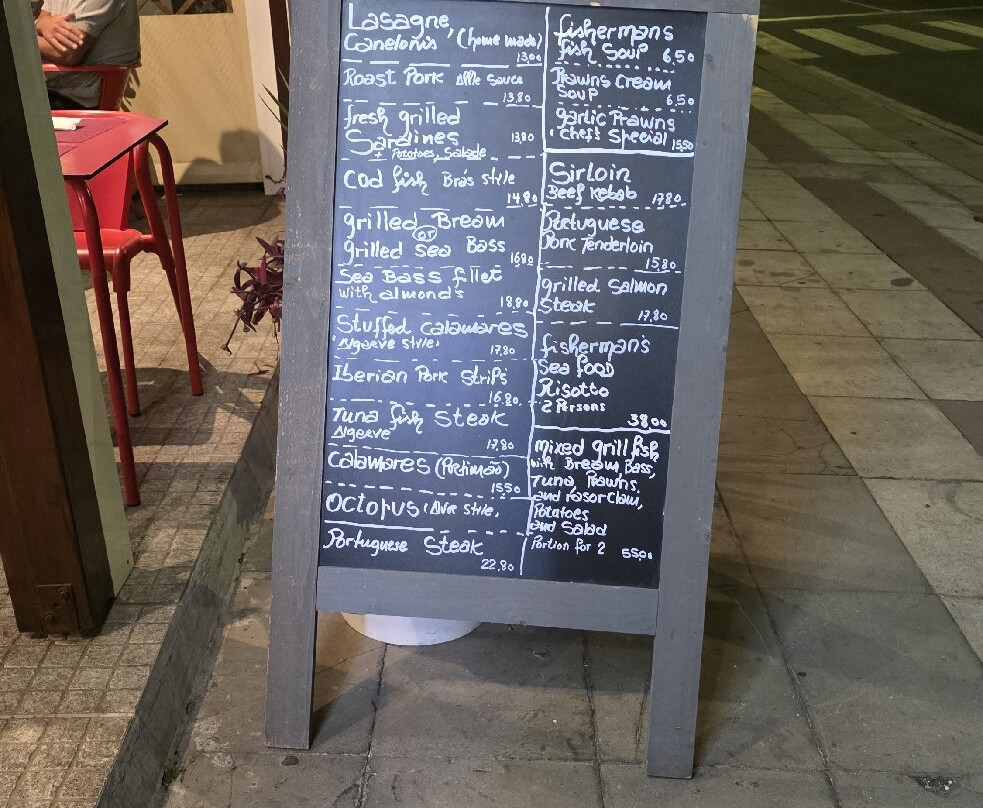 Lasagne
Canelonis (home made)
13,00
Roast Pork Apple Sauce
13,80
fresh grilled
Sardines 13,80
+ Potatoes, Salade
Cod fish Brás style
14,80
grilled Bream
or
grilled Sea Bass 16,80
Sea Bass fillet
with almond's
18,80
Stuffed calamares
'Algarve style' 17,80
Iberian Pork Strips
16,80
Tuna fish Steak
Algarve
17,80
Calamares (Portimão)
15,50
Octopus style.
Portuguese Steak
22,80
fishermans
fish Soup 6,50
Prawns Cream
Soup 6,50
garlic Prawns
'chefs Special 15,50
Sirloin
Beef Kebab 17,80
Portuguese
Pork Tenderloin
15,80
grilled Salmon
Steak
17,80
fisherman's
Sea food
Risotto
2 Persons
38,00
mixed grill fish
with Bream, Bass,
Tuna, Prawns,
and rasor clam,
Potatoes
and Salad
Portion for 2 55,00